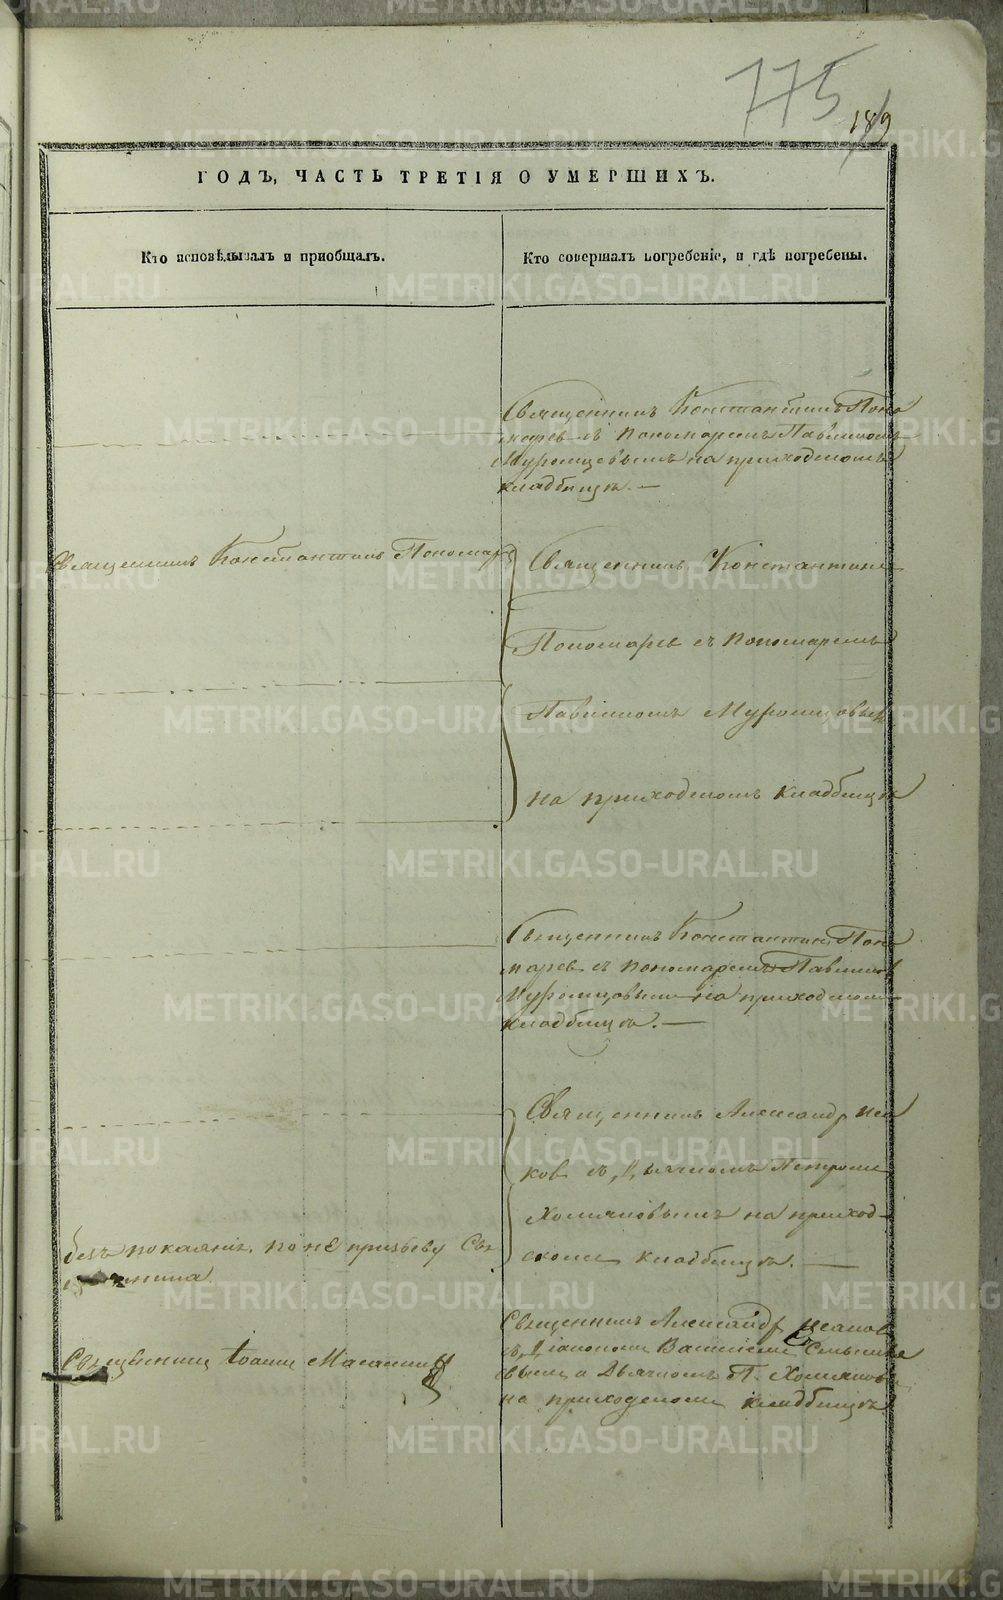 775
189
ГОДЪ, ЧАСТЬ ТРЕТІЯ О УМЕРШИХЪ.
Кто исповѣдывалъ и пріобщалъ.
Кто совершалъ погребеніе, и гдѣ погребены.
Священникъ Константинъ Поно
маревъ съ пономаремъ Павломъ
Муромцевымъ на приходскомъ
кладбищѣ. —
Священникъ Константинъ Пономар
Священникъ Константинъ
Пономаревъ съ пономаремъ
Павломъ Муромцовым
на приходскомъ кладбищѣ
Священникъ Константинъ Поно
маревъ съ пономаремъ Павлом
Муромцовым на приходском
кладбищѣ. —
Священникъ Александр Иса
ков съ Дьячкомъ Петром
Хомяковымъ на приход-
ском кладбищѣ. —
безъ покаянія, по не призыву Свя
щенника.
Священникъ Александр Исаков
съ Діакономъ Василіем
и Дьячкомъ П. Хомяков
на приходском кладбищѣ
Священник Іоанн
METRIKI.GASO-URAL.RU